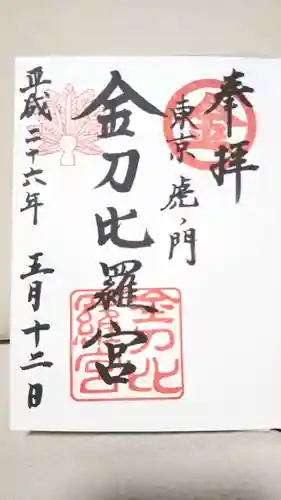 奉拝
東京虎ノ門
金
金刀比羅宮
金刀比羅宮
平成二十六年 五月十二日